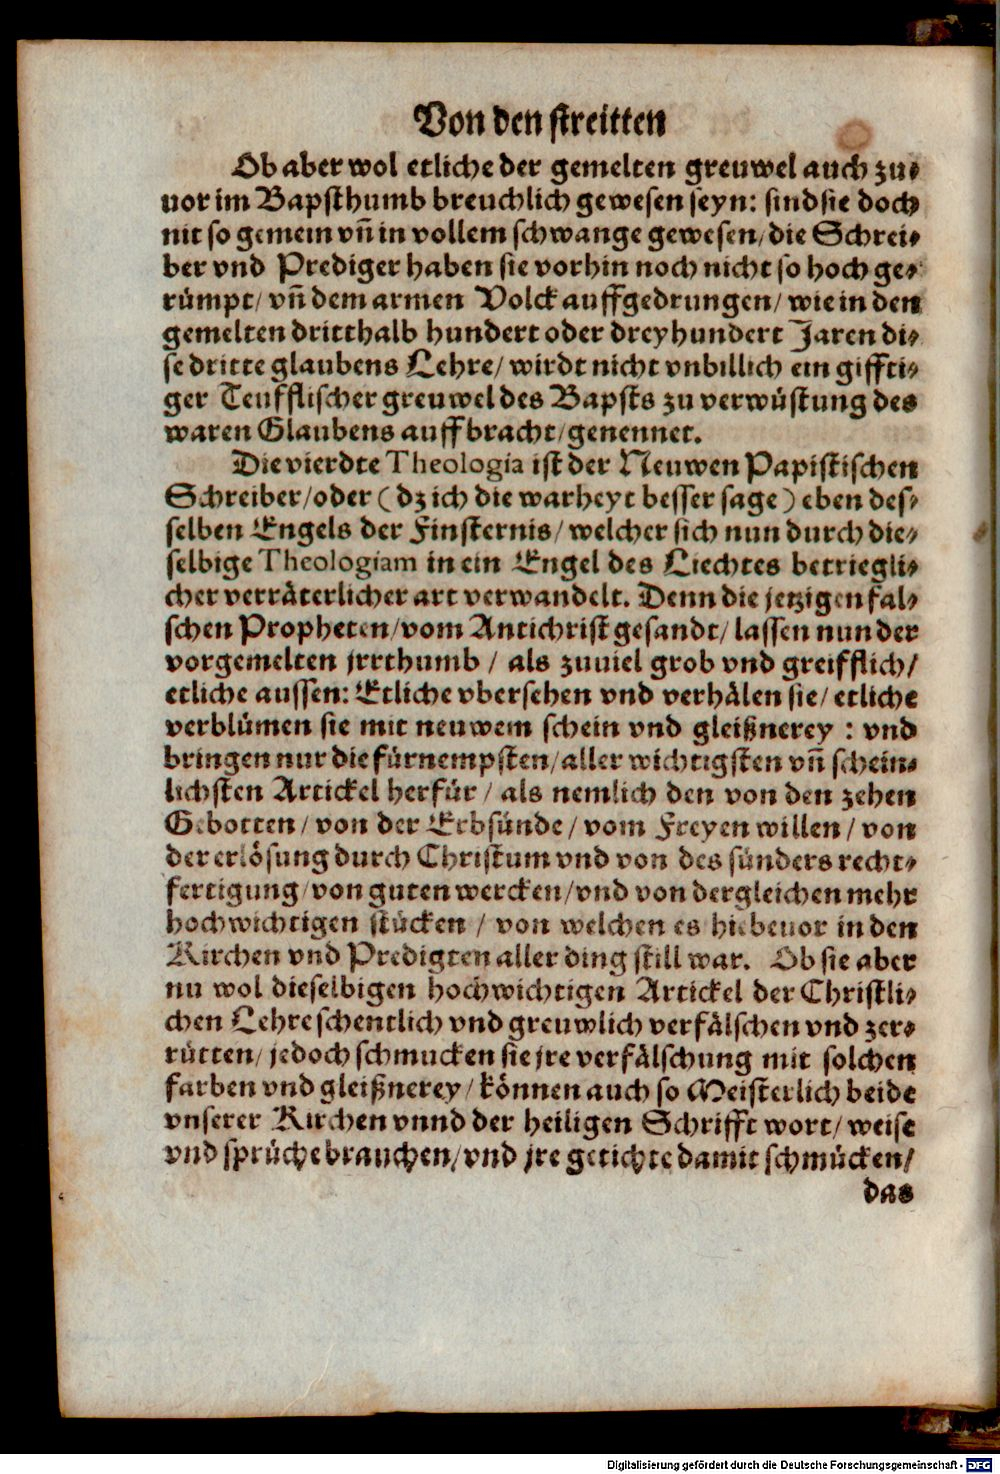 Von den streitten
Ob aber wol etliche der gemelten greuwel auch zu⸗
uor im Bapsthumb breuchlich gewesen seyn: sind sie doch
nit so gemein vñ in vollem schwange gewesen/ die Schrei⸗
ber vnd Prediger haben sie vorhin noch nicht so hoch ge⸗
rümpt/ vñ dem armen Volck auffgedrungen/ wie in den
gemelten dritthalb hundert oder dreyhundert Jaren di⸗
se dritte glaubens Lehre/ wirdt nicht vnbillich ein giffti⸗
ger Teufflischer greuwel des Bapsts zu verwüstung des
waren Glaubens auffbracht/ genennet.
Die vierdte Theologia ist der Neuwen Papistischen
Schreiber/ oder (dz ich die warheyt besser sage) eben des⸗
selben Engels der Finsternis/ welcher sich nun durch die⸗
selbige Theologiam in ein Engel des Liechtes betriegli⸗
cher verräterlicher art verwandelt. Denn die jetzigen fal⸗
schen Propheten/ vom Antichrist gesandt/ lassen nun der
vorgemelten jrrthumb / als zuuiel grob vnd greifflich/
etliche aussen: Etliche vbersehen vnd verhälen sie/ etliche
verblümen sie mit neuwem schein vnd gleißnerey : vnd
bringen nur die fürnempsten/ aller wichtigsten vñ schein⸗
lichsten Artickel herfür / als nemlich den von den zehen
Gebotten/ von der Erbsünde/ vom Freyen willen/ von
der erlösung durch Christum vnd von des sünders recht⸗
fertigung/ von guten wercken/ vnd von dergleichen mehr
hochwichtigen stücken / von welchen es hiebeuor in den
Kirchen vnd Predigten aller ding still war. Ob sie aber
nu wol dieselbigen hochwichtigen Artickel der Christli⸗
chen Lehre schentlich vnd greuwlich verfälschen vnd zer⸗
rütten/ jedoch schmucken sie jre verfälschung mit solchen
farben vnd gleißnerey/ können auch so Meisterlich beide
vnserer Kirchen vnnd der heiligen Schrifft wort/ weise
vnd sprüche brauchen/ vnd jre getichte damit schmücken/
das
Digitalisierung gefördert durch die Deutsche Forschungsgemeinschaft - DFG